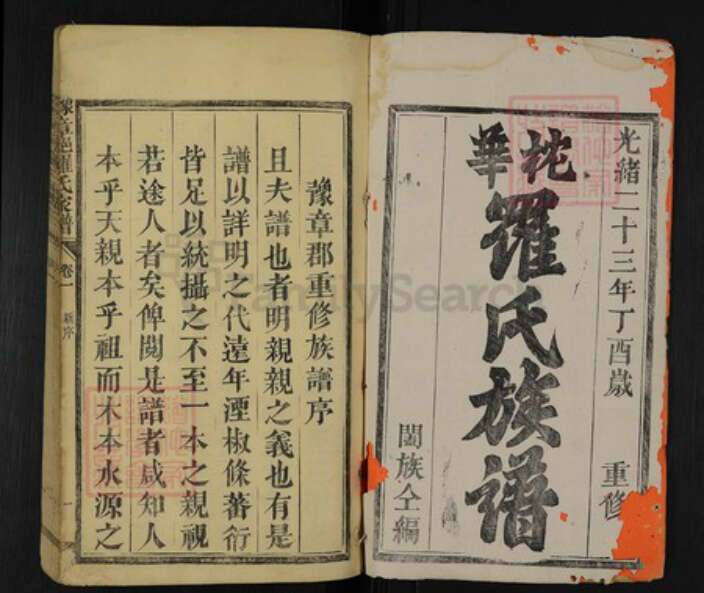 光緒二十三年丁酉歲 重修
華桃
羅氏族譜
闔族仝編
豫章郡重修族譜序
且夫譜也者明親親之義也有是
譜以詳明之代遠年湮椒條蕃衍
皆足以統攝之不至一本之親視
若途人者矣俾閱是譜者咸知人
本乎天親本乎祖而木本水源之
豫章郡羅氏家譜 卷一 新序 一
FamilySearch